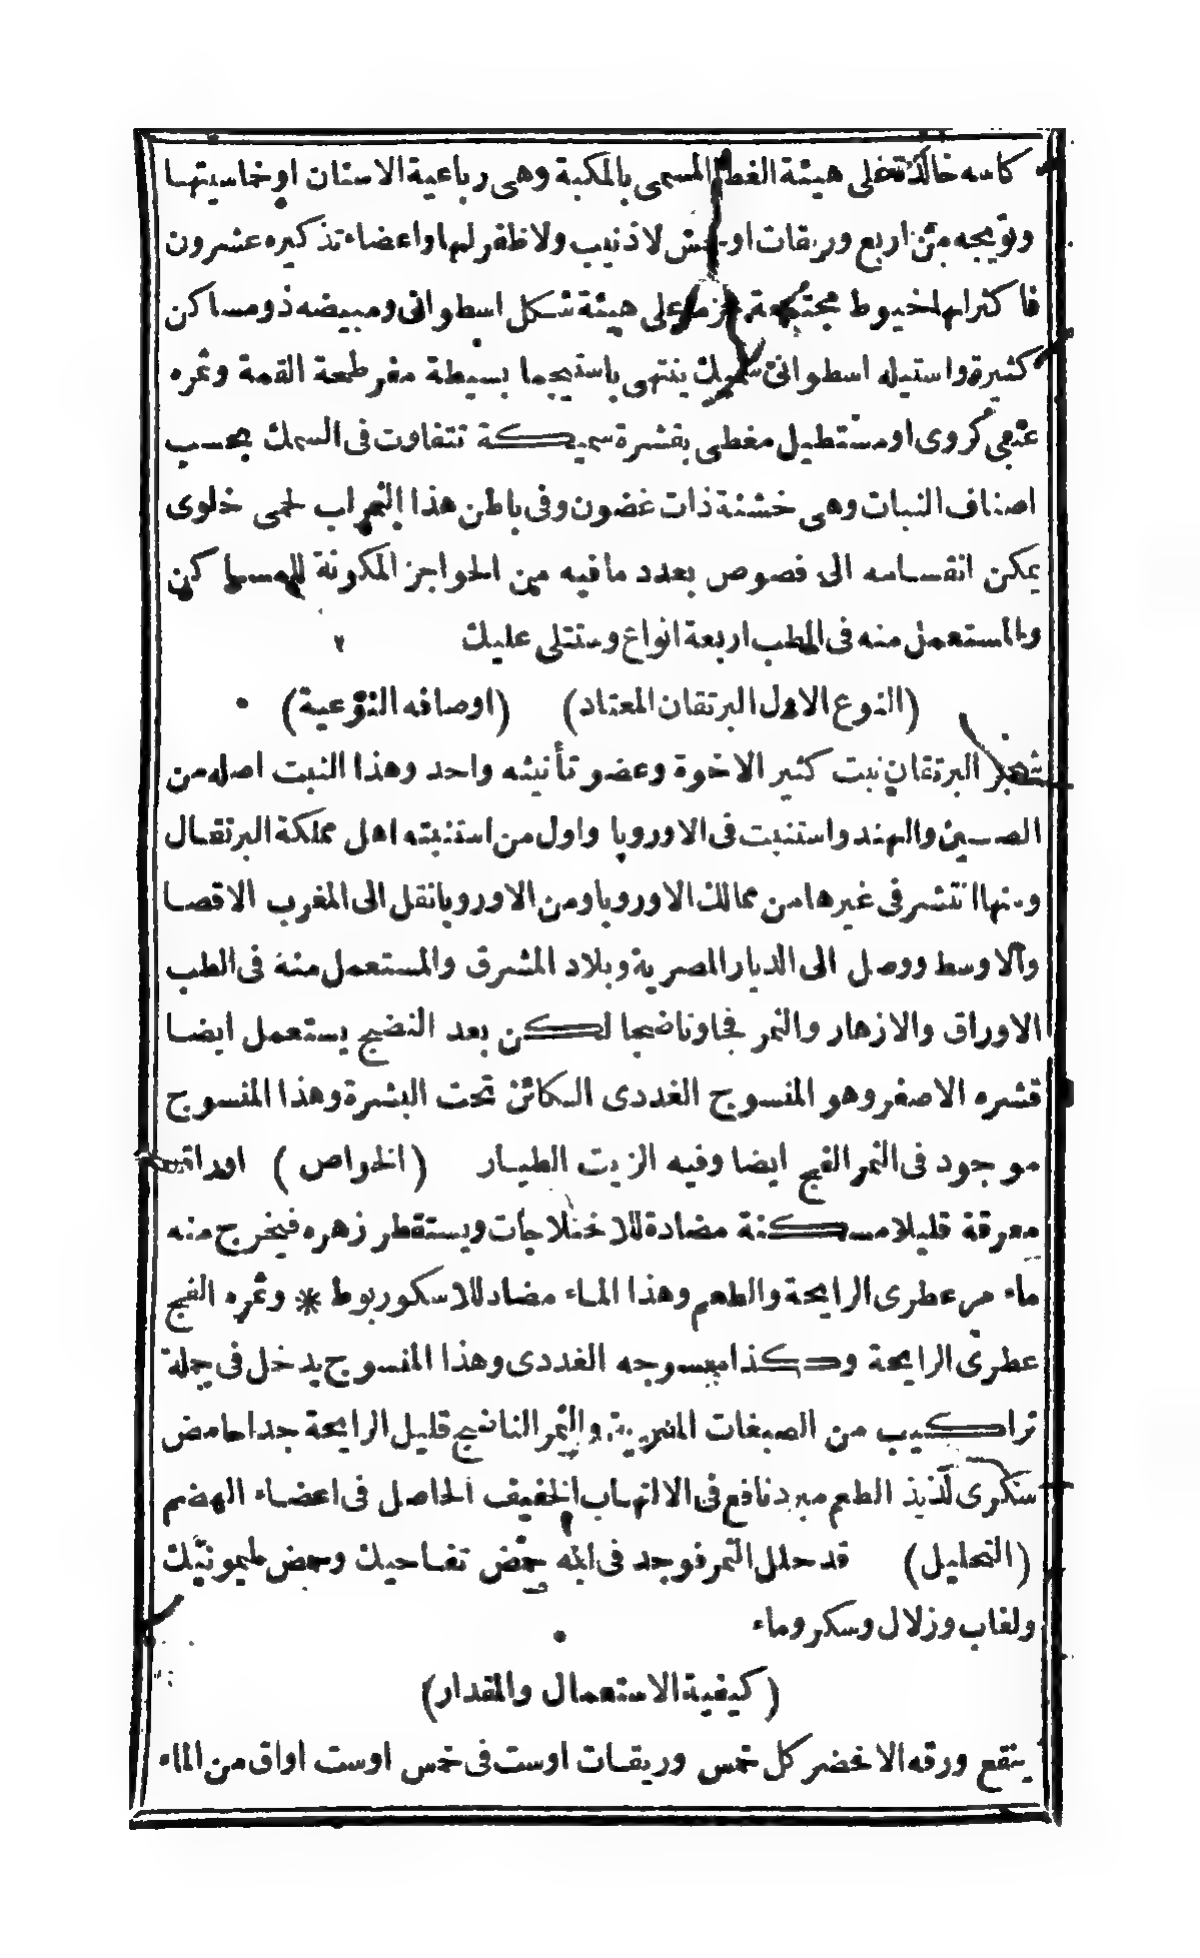 كاسه خالدة على هيئة الغطا المسمى بالمكبة وهى رباعية الاسنان او خماسيتها
وتويجه من اربع وريقات او خمس لا ذنيب ولا ظفر لها واعضاء تذكيره عشرون
فاكثر لها خيوط مجتمعة حزما على هيئة شكل اسطوانى ومبيضه ذو مساكن
كثيرة واستيله اسطوانى سميك ينتهى باستيجما بسيطة مفرطحة القمة وثمره
عنبى كروى او مستطيل مغطى بقشرة سميكة تتفاوت فى السمك بحسب
اصناف النبات وهى خشنة ذات غضون وفى باطن هذا الثمر لب لحمى خلوى
يمكن انقسامه الى فصوص بعدد ما فيه من الحواجز المكونة للمساكن
والمستعمل منه فى الطب اربعة انواع وستتلى عليك
(النوع الاول البرتقان المعتاد) (اوصافه النوعية)
شجر البرتقان نبت كثير الاخوة وعضو تأنيثه واحد وهذا النبت اصله من
الصين والهند واستنبت فى الاوروپا واول من استنبته اهل مملكة البرتقال
ومنها انتشر فى غيرها من ممالك الاوروپا ومن الاوروپا نقل الى المغرب الاقصا
والاوسط ووصل الى الديار المصرية وبلاد المشرق والمستعمل منه فى الطب
الاوراق والازهار والثمر فجا وناضجا لكن بعد النضج يستعمل ايضا
قشره الاصفر وهو المنسوج الغددى الكائن تحت البشرة وهذا المنسوج
موجود فى الثمر الفج ايضا وفيه الزيت الطيار (الخواص) اوراقه
معرقة قليلا مسكنة مضادة للاختلاجات ويستقطر زهره فيخرج منه
ماء مر عطرى الرايحة والطعم وهذا الماء مضاد للاسكوربوط * وثمره الفج
عطرى الرايحة وكذا منسوجه الغددى وهذا المنسوج يدخل فى جملة
تراكيب من الصبغات المرية والثمر الناضج قليل الرايحة جدا حامض
سكرى لذيذ الطعم مبرد نافع فى الالتهاب الخفيف الحاصل فى اعضاء الهضم
(التحليل) قد حلل الثمر فوجد فى لبه حمض تفاحيك وحمض ليمونيك
ولعاب وزلال وسكر وماء
(كيفية الاستعمال والمقدار)
ينقع ورقه الاخضر كل خمس وريقات اوست فى خمس اوست اواق من الماء